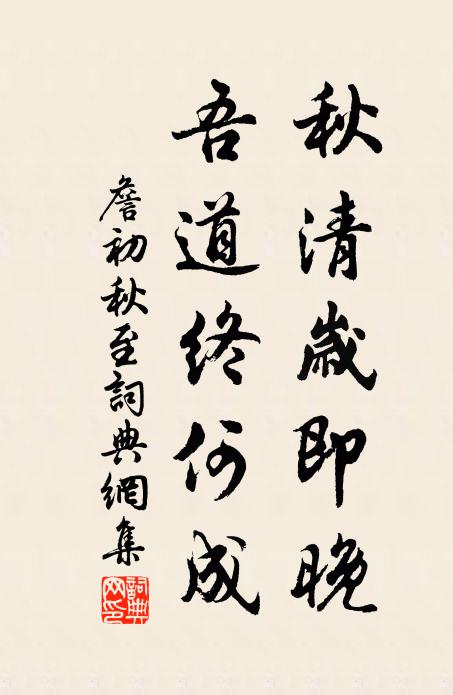 秋清歲即晚
吾道終何成
詹初秋至詞典網集
詞典網印